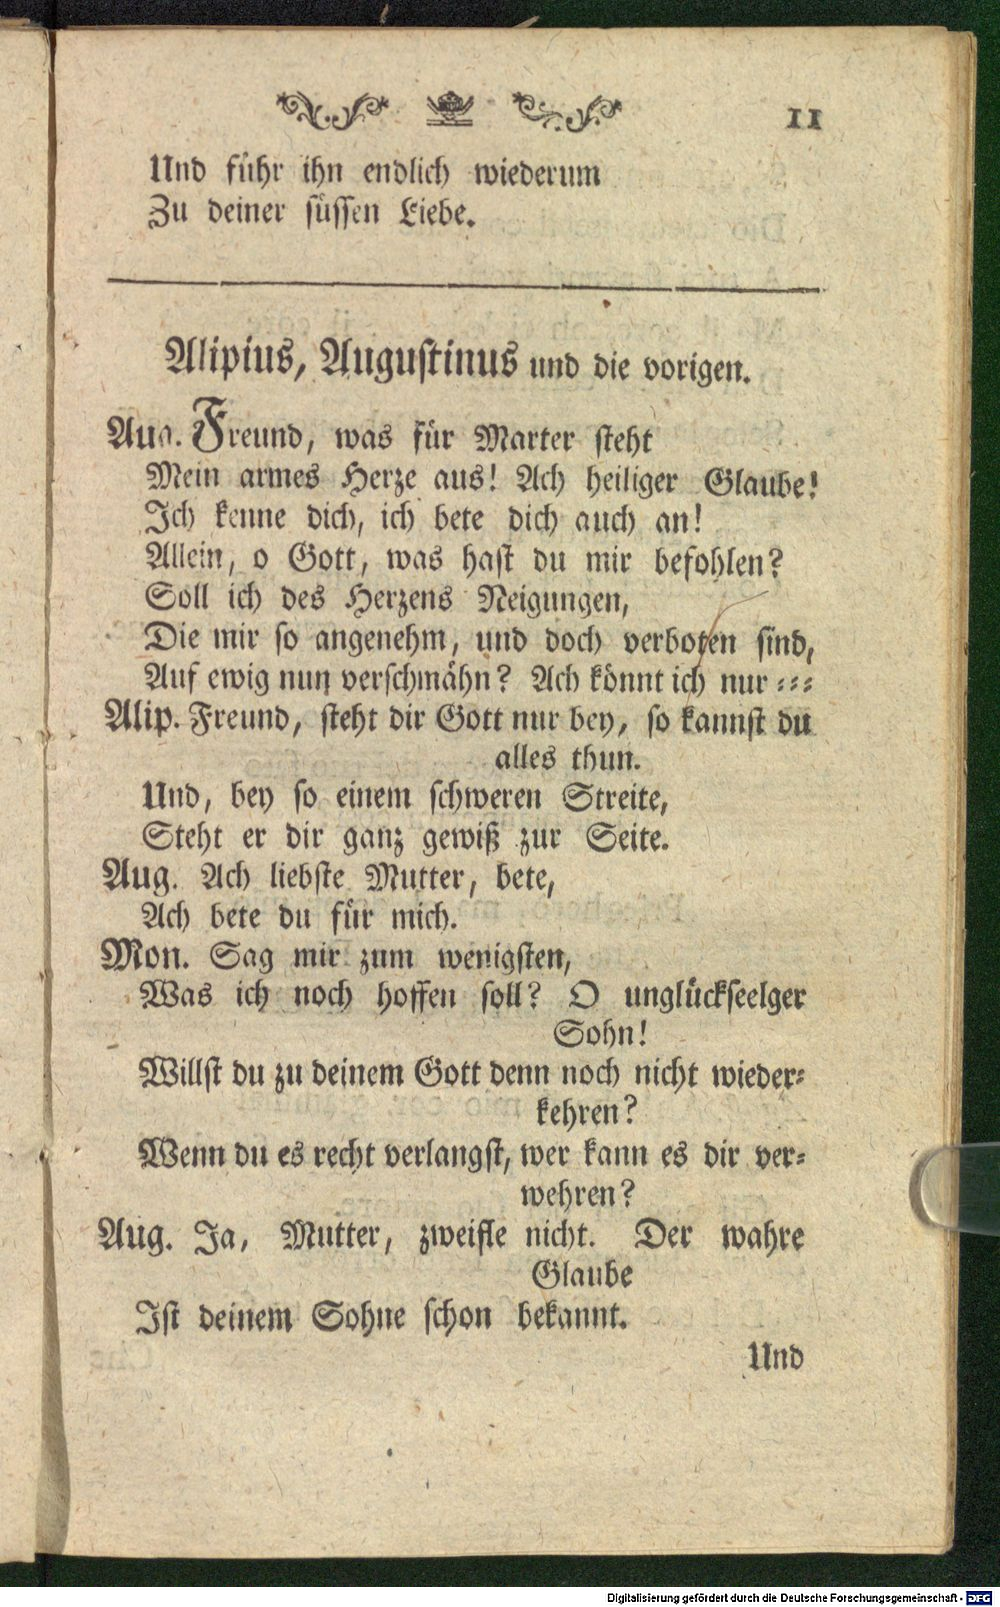 11
Und führ ihn endlich wiederum
Zu deiner süssen Liebe.
Alipius, Augustinus und die vorigen.
Aug. Freund, was für Marter steht
Mein armes Herze aus! Ach heiliger Glaube!
Ich kenne dich, ich bete dich auch an!
Allein, o Gott, was hast du mir befohlen?
Soll ich des Herzens Neigungen,
Die mir so angenehm, und doch verboten sind,
Auf ewig nun verschmähn? Ach könnt ich nur ---
Alip. Freund, steht dir Gott nur bey, so kannst du
alles thun.
Und, bey so einem schweren Streite,
Steht er dir ganz gewiß zur Seite.
Aug. Ach liebste Mutter, bete,
Ach bete du für mich.
Mon. Sag mir zum wenigsten,
Was ich noch hoffen soll? O unglückseelger
Sohn!
Willst du zu deinem Gott denn noch nicht wieder-
kehren?
Wenn du es recht verlangst, wer kann es dir ver-
wehren?
Aug. Ja, Mutter, zweifle nicht. Der wahre
Glaube
Ist deinem Sohne schon bekannt.
Und
Digitalisierung gefördert durch die Deutsche Forschungsgemeinschaft - DFG